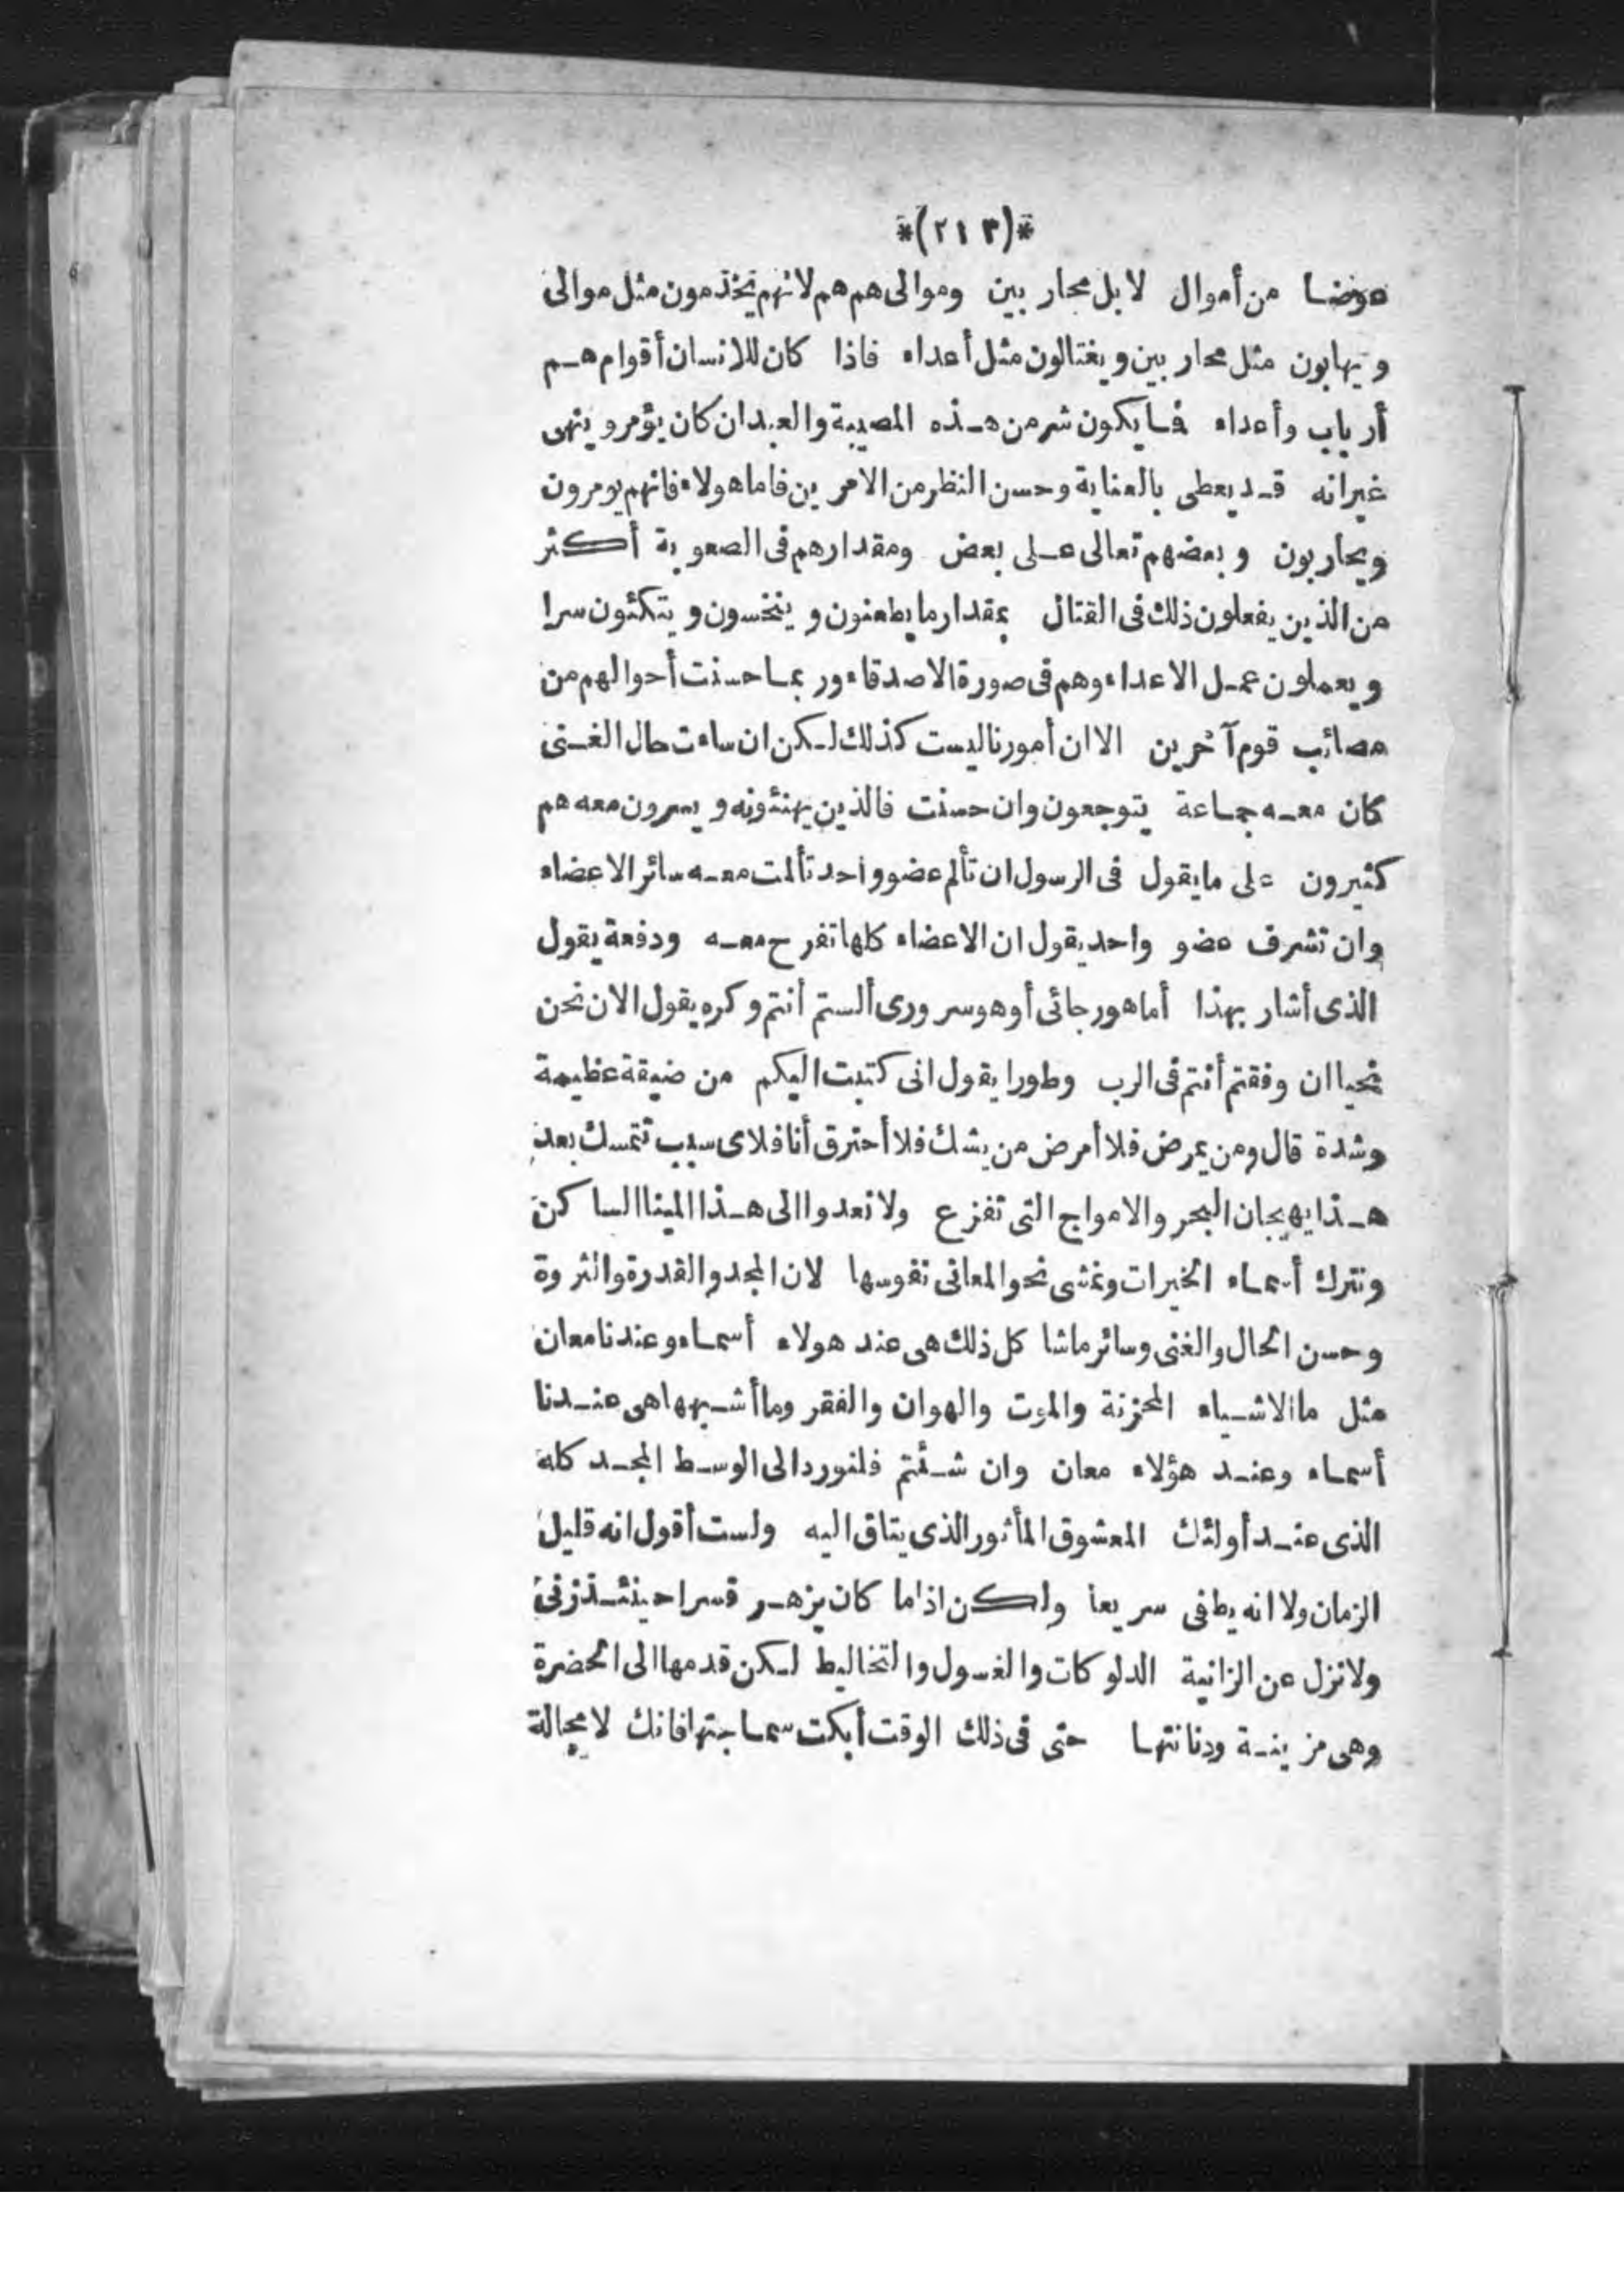 *(٢١٣)*
عوضا من أموال لا بل محاربين وموالى هم هم لانهم يخذمون مثل موالى
ويهابون مثل محاربين ويغتالون مثل أعداء فاذا كان للانسان أقوام هم
أرباب وأعداء فما يكون شر من هذه المصيبة والعبد ان كان يؤمر وينهى
غير انه قد يعطى بالعناية وحسن النظر من الامرين فاما هولاء فانهم يومرون
ويحاربون وبعضهم تعالى على بعض ومقدارهم فى الصعوبة أكثر
من الذين يفعلون ذلك فى القتال بمقدار ما يطعنون وينخسون ويتكئون سرا
ويعملون عمل الاعداء وهم فى صورة الاصدقاء وربما حسنت أحوالهم من
مصائب قوم آخرين الا ان أمورنا ليست كذلك لكن ان ساءت حال الغنى
كان معه جماعة يتوجعون وان حسنت فالذين يهنئونه ويسرون معه هم
كثيرون على ما يقول فى الرسول ان تألم عضو واحد تألمت معه سائر الاعضاء
وان تشرف عضو واحد يقول ان الاعضاء كلها تفرح معه ودفعة يقول
الذى أشار بهذا أما هو رجائى أو هو سرورى ألستم أنتم وكره يقول الان نحن
نحيا ان وفقتم أنتم فى الرب وطورا يقول انى كتبت اليكم من ضيقة عظيمة
وشدة قال ومن يمرض فلا أمرض من يشك فلا أحترق أنا فلاى سبب تتمسك بعد
هذا بهيجان البحر والامواج التى تفزع ولا نعدوا الى هذا المينا الساكن
ونترك أسماء الخيرات ونمشى نحو المعانى نفوسها لان المجد والقدرة والثروة
وحسن الحال والغنى وسائر ماشا كل ذلك هى عند هولاء أسماء وعندنا معان
مثل ما الاشياء المحزنة والموت والهوان والفقر وما أشبهها هى عندنا
أسماء وعند هؤلاء معان وان شئتم فلنورد الى الوسط المجد كله
الذى عند أولئك المعشوق المأثور الذى يتاق اليه ولست أقول انه قليل
الزمان ولا انه يطفى سريعا ولكن اذا ما كان يزهر قسرا حينئذ زفى
ولا نزل عن الزانية الدلوكات والغسول والتخاليط لكن قدمها الى الحضرة
وهى مزينة ودنانتها حتى فى ذلك الوقت أبكت سماجتها فانك لا محالة